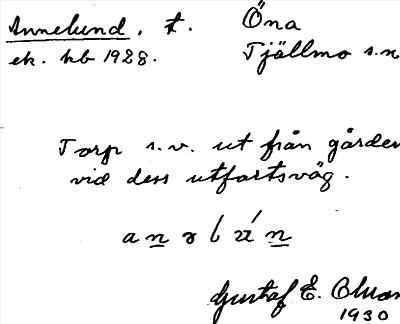 Annelund, t. Öna
ek. kb 1928. Tjällmo s:n
Torp s.v. ut från gården
vid dess utfartsväg.
Gustaf E.
1930